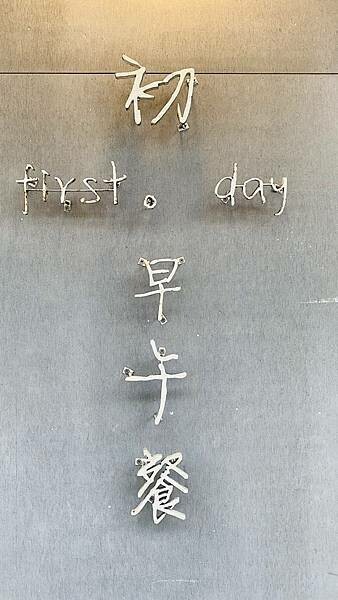 初
first。 day
早
午
餐